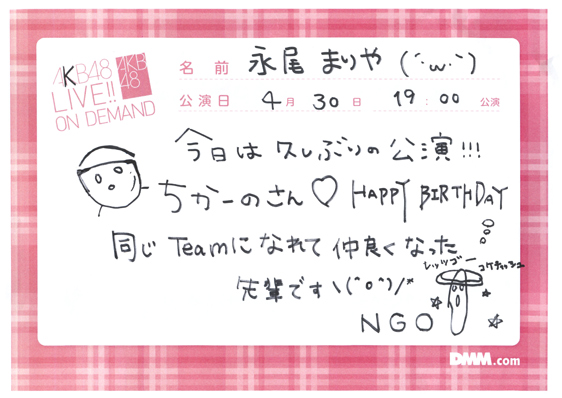 AKB48
LIVE!!
ON DEMAND
AKB
48
名前 永尾 まりや (´･ω･`)
公演日 4月 30日 19:00 公演
今日は 久しぶりの 公演!!!
ちかーのさん♡ HAPPY BIRTHDAY
同じ Teamに なれて 仲良く なった
先輩です ヽ(^o^)/*
レッツゴー
NGO
DMM.com